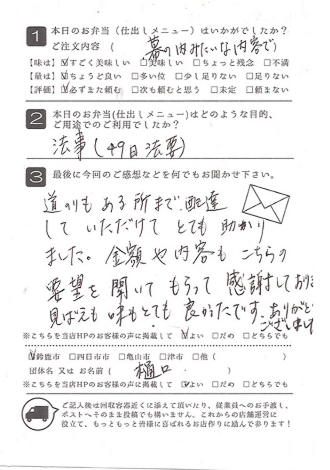 1 本日のお弁当(仕出しメニュー)はいかがでしたか?
ご注文内容 ( 幕の内みたいな内容で)
【味は】☑すごく美味しい □美味しい □ちょっと残念 □不満
【量は】☑ちょうど良い □多い位 □少し足りない □足りない
【評価】☑必ずまた頼む □次も頼むと思う □未定 □頼まない
2 本日のお弁当(仕出しメニュー)はどのような目的、
ご用途でのご利用でしたか?
法事(49日法要)
3 最後に今回のご感想などを何でもお聞かせ下さい。
道のりもある所まで配達
していただけて とても助かり
ました。金額や内容もこちらの
要望を聞いてもらって感謝しており
見ばえも味もとても良かったです。ありがとう
ございました
※こちらを当店HPのお客様の声に掲載して ☑よい □だめ □どちらでも
☑鈴鹿市 □四日市市 □亀山市 □津市 □他( )
団体名 又は お名前( 樋口 )
※こちらを当店HPのお客様の声に掲載して ☑よい □だめ □どちらでも
ご記入後は回収容器近くに添えて頂いたり、従業員へのお手渡し、
ポストへそのまま投稿でも構いません。これからの店舗運営に
役立て、もっともっと皆様に喜ばれるお店作りに励んで参ります!